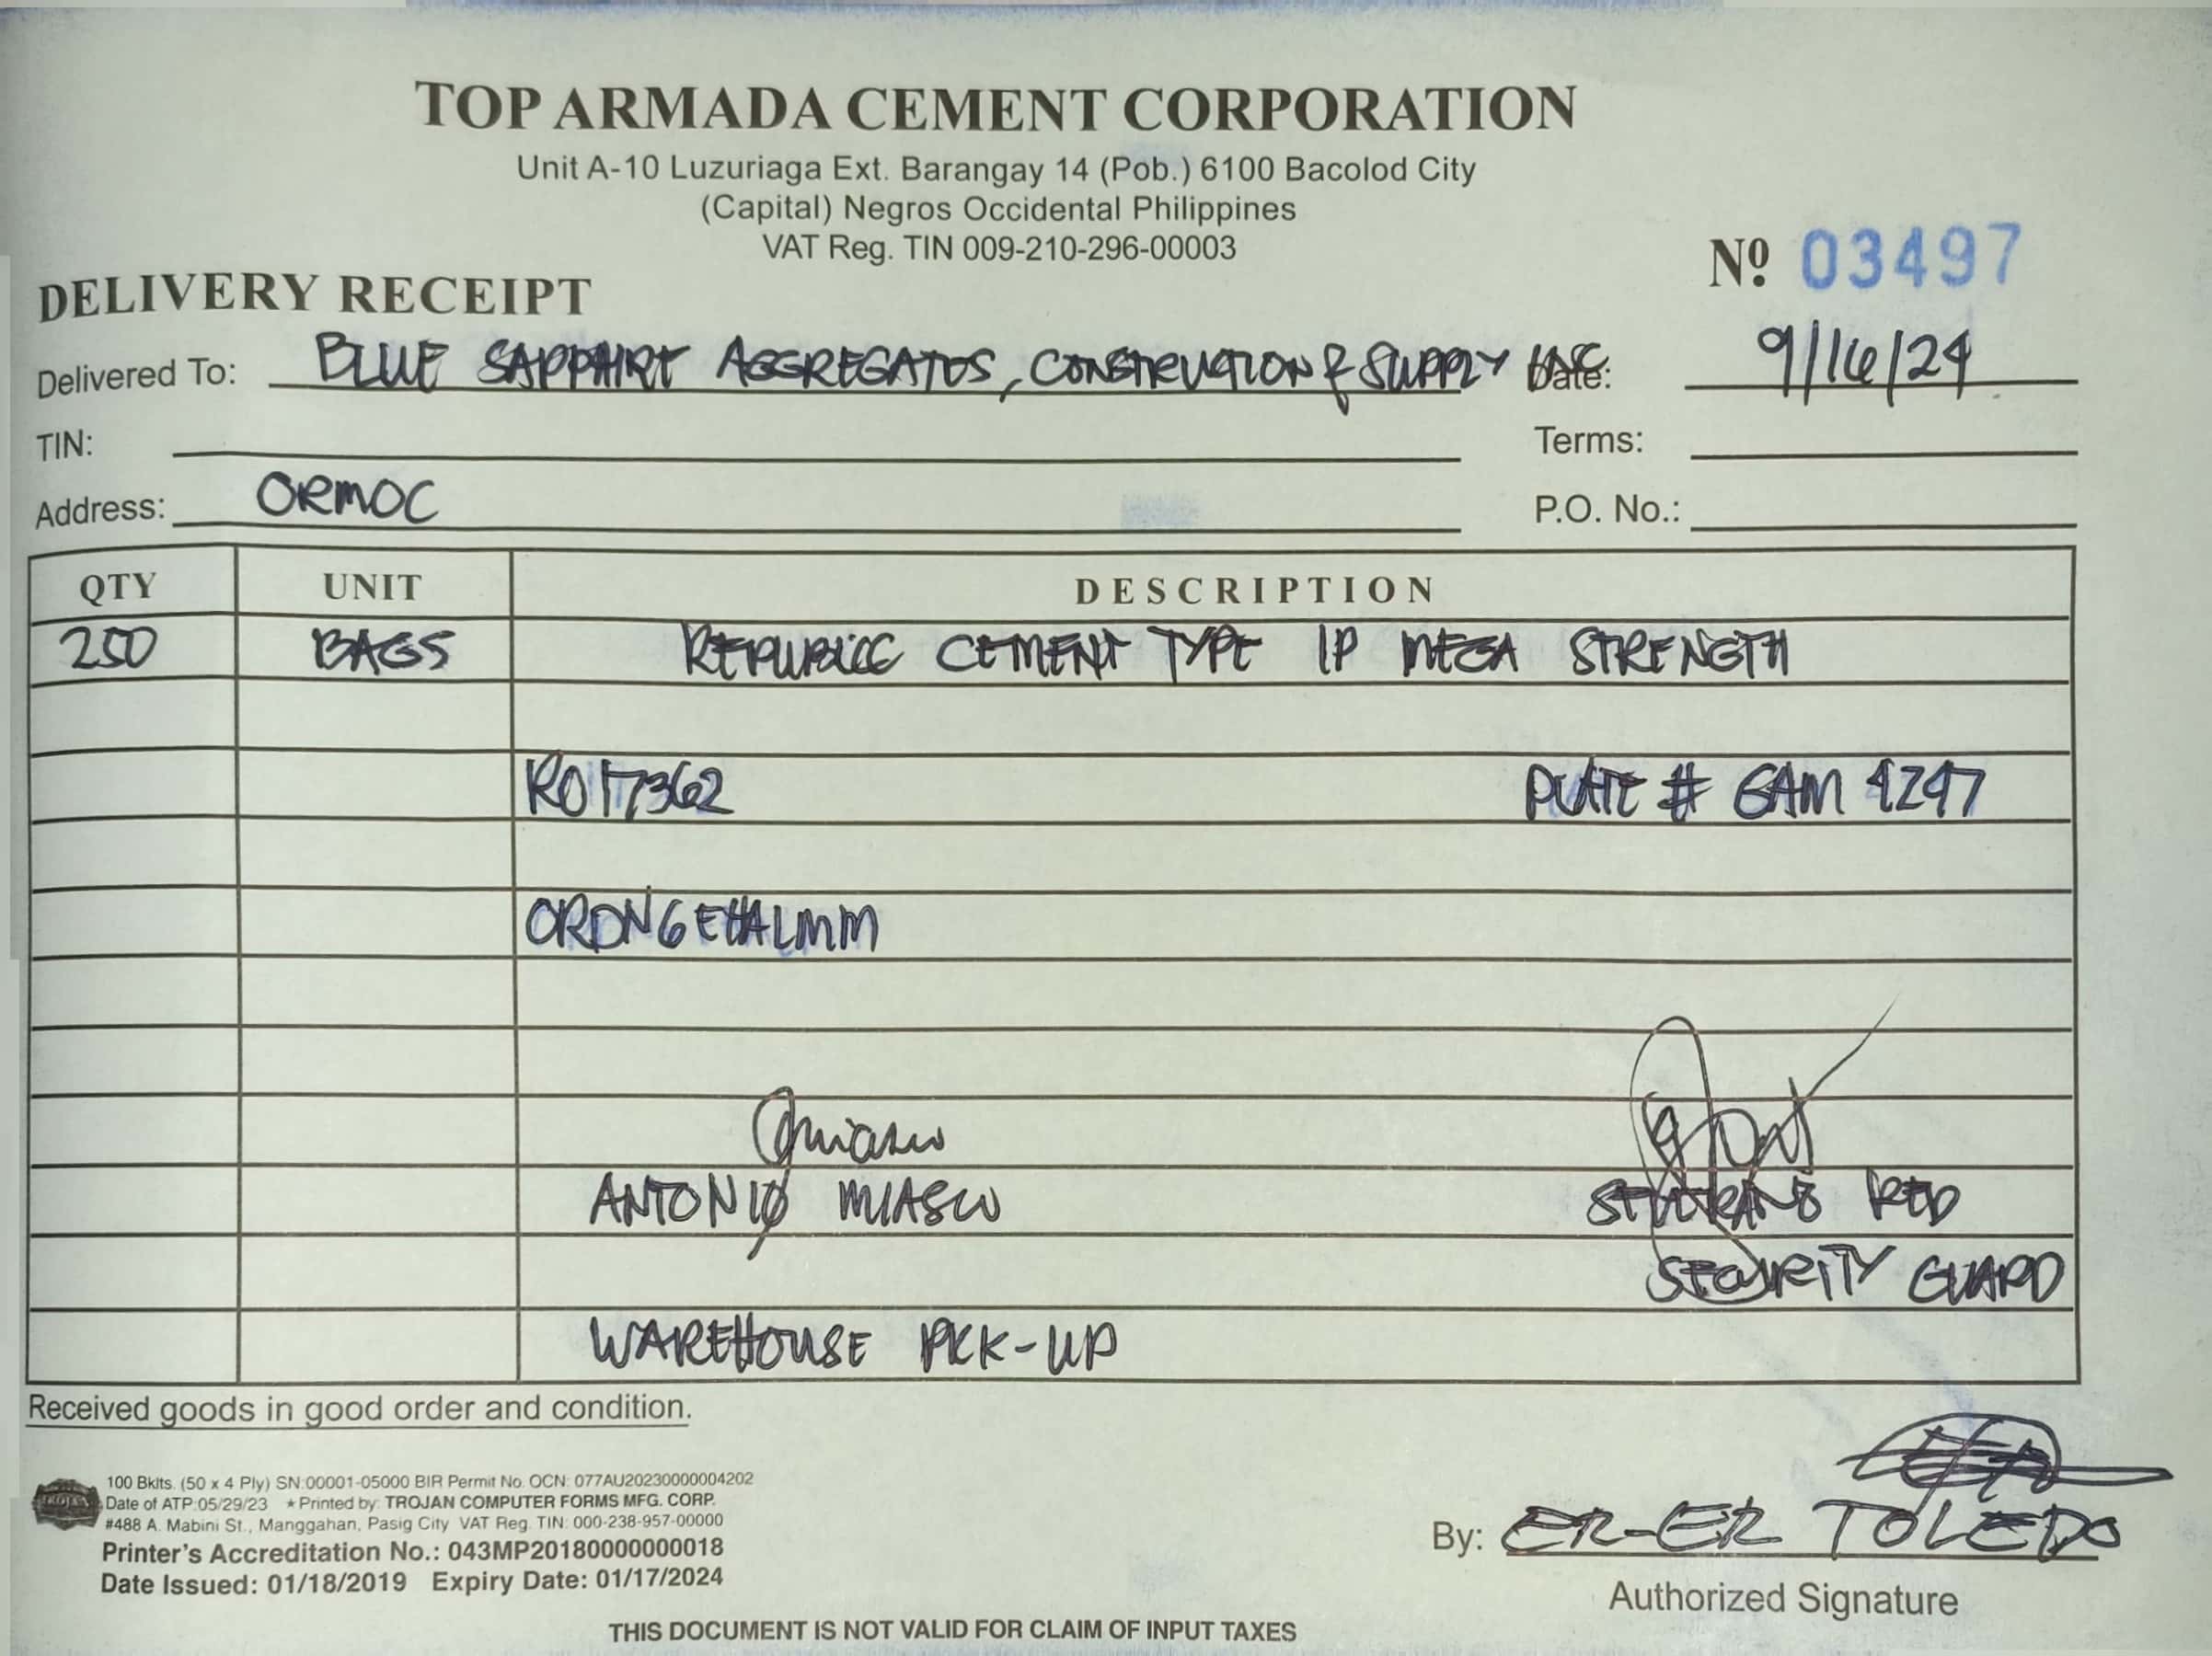 TOP ARMADA CEMENT CORPORATION
Unit A-10 Luzuriaga Ext. Barangay 14 (Pob.) 6100 Bacolod City
(Capital) Negros Occidental Philippines
VAT Reg. TIN 009-210-296-00003
Nº 03497
DELIVERY RECEIPT
Delivered To: BLUE SAPPHIRE AGGREGATES, CONSTRUCTION & SUPPLY INC Date: 9/16/24
TIN: Terms:
Address: ORMOC P.O. No.:
QTY UNIT DESCRIPTION
250 BAGS REPUBLIC CEMENT TYPE 1P MEGA STRENGTH
R017362 PLATE # GAM 4247
ORDNGEHALMM
ANTONIO MIASCO RED
SECURITY GUARD
WAREHOUSE PICK-UP
Received goods in good order and condition.
100 Bklts. (50 x 4 Ply) SN:00001-05000 BIR Permit No. OCN: 077AU20230000004202
Date of ATP:05/29/23 ★Printed by: TROJAN COMPUTER FORMS MFG. CORP.
#488 A. Mabini St., Manggahan, Pasig City VAT Reg. TIN: 000-238-957-00000
Printer's Accreditation No.: 043MP20180000000018
Date Issued: 01/18/2019 Expiry Date: 01/17/2024
By: ER-ER TOLEDO
Authorized Signature
THIS DOCUMENT IS NOT VALID FOR CLAIM OF INPUT TAXES